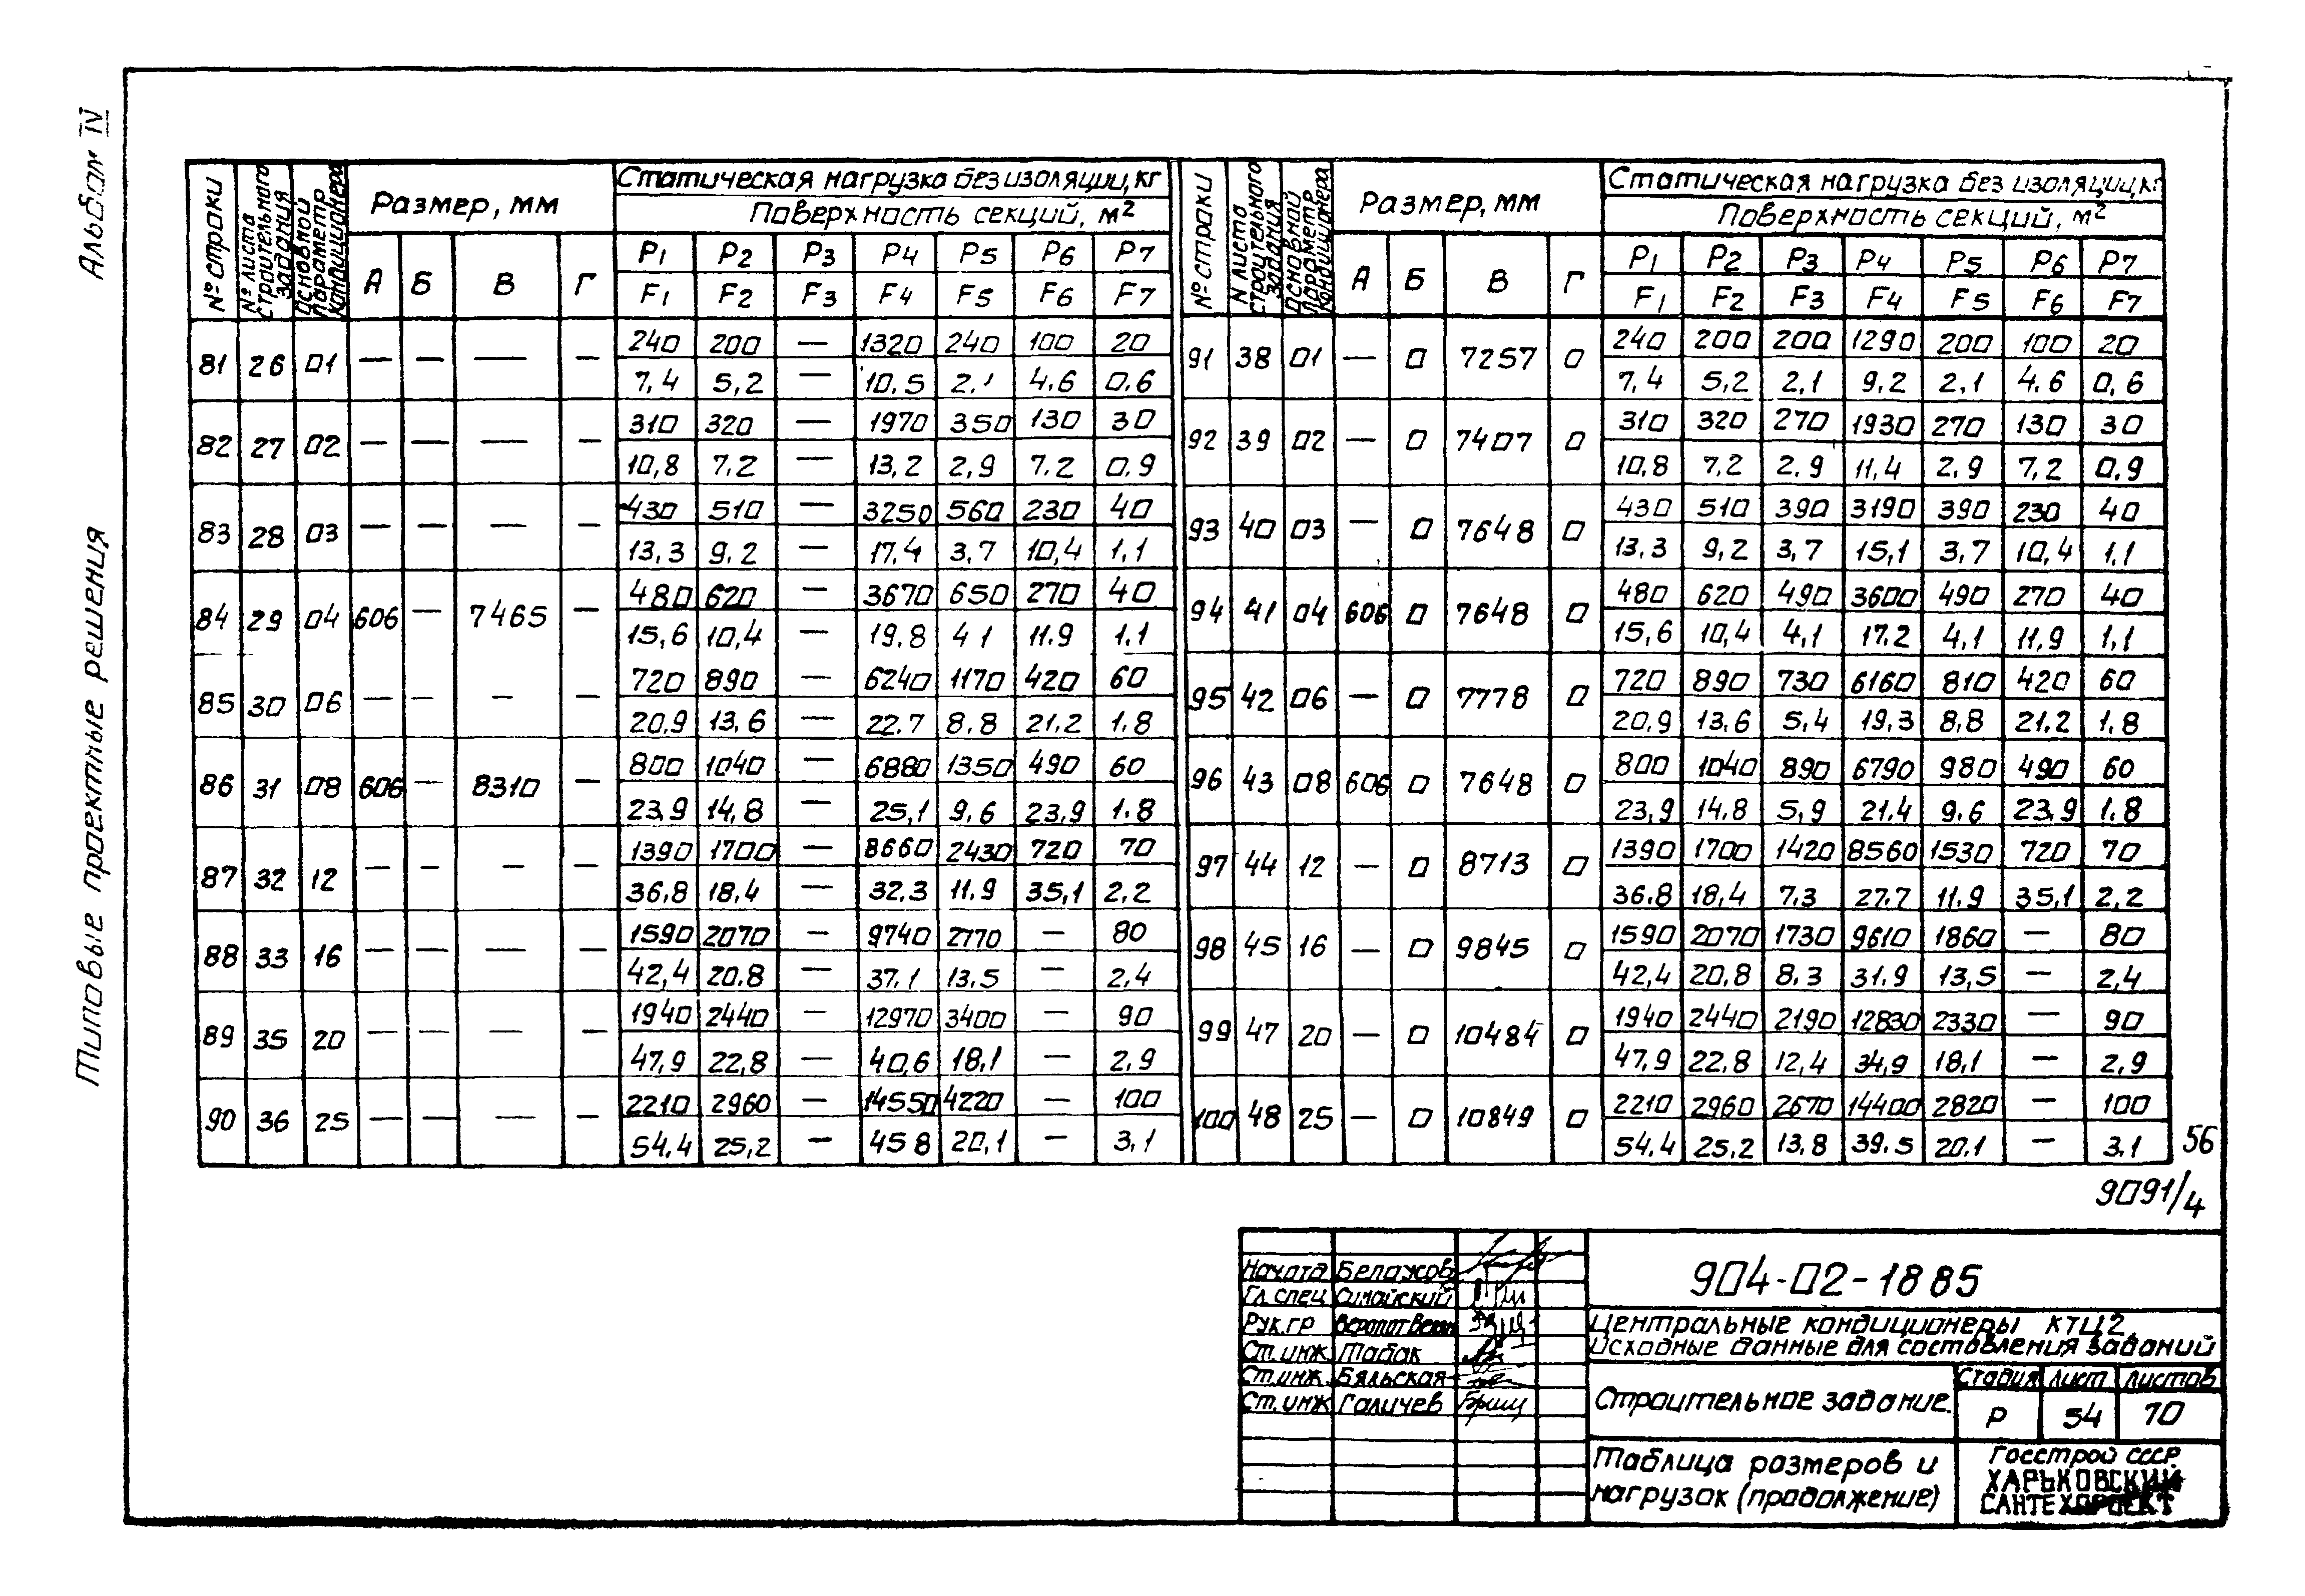 Альбом IV
Типовые проектные решения
№ строки | № листа строительного задания | Основной параметр кондиционера | Размер, мм | Статическая нагрузка без изоляции, кг
Поверхность секций, м²
А | Б | В | Г | P1 | P2 | P3 | P4 | P5 | P6 | P7
F1 | F2 | F3 | F4 | F5 | F6 | F7
81 | 26 | 01 | — | — | — | — | 240 | 200 | — | 1320 | 240 | 100 | 20
7,4 | 5,2 | — | 10.5 | 2,1 | 4.6 | 0.6
82 | 27 | 02 | — | — | — | — | 310 | 320 | — | 1970 | 350 | 130 | 30
10,8 | 7.2 | — | 13,2 | 2,9 | 7.2 | 0.9
83 | 28 | 03 | — | — | — | — | 430 | 510 | — | 3250 | 560 | 230 | 40
13,3 | 9,2 | — | 17.4 | 3,7 | 10,4 | 1,1
84 | 29 | 04 | 606 | — | 7465 | — | 480 | 620 | — | 3670 | 650 | 270 | 40
15,6 | 10,4 | — | 19,8 | 4 1 | 11.9 | 1.1
85 | 30 | 06 | — | — | — | — | 720 | 890 | — | 6240 | 1170 | 420 | 60
20,9 | 13,6 | — | 22.7 | 8,8 | 21,2 | 1,8
86 | 31 | 08 | 606 | — | 8310 | — | 800 | 1040 | — | 6880 | 1350 | 490 | 60
23,9 | 14,8 | — | 25,1 | 9,6 | 23,9 | 1.8
87 | 32 | 12 | — | — | — | — | 1390 | 1700 | — | 8660 | 2430 | 720 | 70
36,8 | 18,4 | — | 32.3 | 11,9 | 35,1 | 2,2
88 | 33 | 16 | — | — | — | — | 1590 | 2070 | — | 9740 | 2770 | — | 80
42,4 | 20.8 | — | 37.1 | 13.5 | — | 2,4
89 | 35 | 20 | — | — | — | — | 1940 | 2440 | — | 12970 | 3400 | — | 90
47,9 | 22,8 | — | 40,6 | 18,1 | — | 2,9
90 | 36 | 25 | — | — | — | — | 2210 | 2960 | — | 14550 | 4220 | — | 100
54,4 | 25,2 | — | 45 8 | 20,1 | — | 3,1
№ строки | N листа строительного задания | Основной параметр кондиционера | Размер, мм | Статическая нагрузка без изоляции, кг
Поверхность секций, м²
А | Б | В | Г | P1 | P2 | P3 | P4 | P5 | P6 | P7
F1 | F2 | F3 | F4 | F5 | F6 | F7
91 | 38 | 01 | — | 0 | 7257 | 0 | 240 | 200 | 200 | 1290 | 200 | 100 | 20
7,4 | 5,2 | 2,1 | 9,2 | 2,1 | 4,6 | 0,6
92 | 39 | 02 | — | 0 | 7407 | 0 | 310 | 320 | 270 | 1930 | 270 | 130 | 30
10,8 | 7,2 | 2.9 | 11,4 | 2,9 | 7,2 | 0,9
93 | 40 | 03 | — | 0 | 7648 | 0 | 430 | 510 | 390 | 3190 | 390 | 230 | 40
13,3 | 9,2 | 3,7 | 15,1 | 3,7 | 10,4 | 1,1
94 | 41 | 04 | 606 | 0 | 7648 | 0 | 480 | 620 | 490 | 3600 | 490 | 270 | 40
15,6 | 10,4 | 4,1 | 17.2 | 4,1 | 11,9 | 1,1
95 | 42 | 06 | — | 0 | 7778 | 0 | 720 | 890 | 730 | 6160 | 810 | 420 | 60
20,9 | 13,6 | 5,4 | 19,3 | 8,8 | 21,2 | 1,8
96 | 43 | 08 | 606 | 0 | 7648 | 0 | 800 | 1040 | 890 | 6790 | 980 | 490 | 60
23,9 | 14,8 | 5,9 | 21.4 | 9.6 | 23,9 | 1.8
97 | 44 | 12 | — | 0 | 8713 | 0 | 1390 | 1700 | 1420 | 8560 | 1530 | 720 | 70
36.8 | 18,4 | 7,3 | 27.7 | 11.9 | 35,1 | 2,2
98 | 45 | 16 | — | 0 | 9845 | 0 | 1590 | 2070 | 1730 | 9610 | 1860 | — | 80
42,4 | 20,8 | 8,3 | 31.9 | 13,5 | — | 2,4
99 | 47 | 20 | — | 0 | 10484 | 0 | 1940 | 2440 | 2190 | 12830 | 2330 | — | 90
47,9 | 22,8 | 12,4 | 34,9 | 18,1 | — | 2,9
100 | 48 | 25 | — | 0 | 10849 | 0 | 2210 | 2960 | 2670 | 14400 | 2820 | — | 100
54,4 | 25,2 | 13,8 | 39.5 | 20.1 | — | 3.1
56
9091/4
904-02-18 85
Центральные кондиционеры КТЦ2.
Исходные данные для составления заданий
Гл. спец. Синайский
Рук. гр
Ст. инж. Табак
Ст. инж. Бяльская
Ст. инж Галичев
Строительное задание.
Стадия | Лист | Листов
Р | 54 | 70
Таблица размеров и
нагрузок (продолжение)
Госстрой СССР
ХАРЬКОВСКИЙ
САНТЕХПРОЕКТ